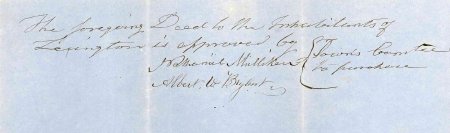 The foregoing Deed to the Inhabitants of
Lexington is approved by
Nathaniel Mulliken } Town's Comtee
Albert W Bryant } to purchase